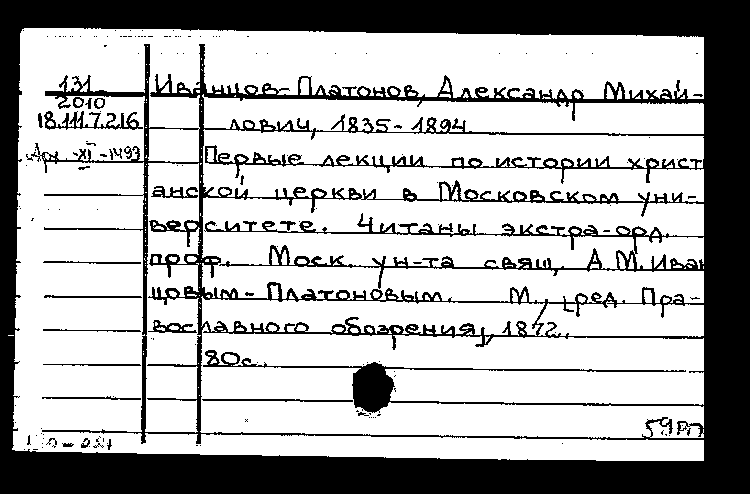 131
2010
18.111.7.216
Арх -XI-1493
Иванцов-Платонов, Александр Михай-
лович, 1835-1894
Первые лекции по истории христ
анской церкви в Московском уни-
верситете. Читаны экстра-орд.
проф. Моск. ун-та свящ. А.М. Иван
цовым-Платоновым. М., [ред. Пра-
вославного обозрения], 1872.
80с.